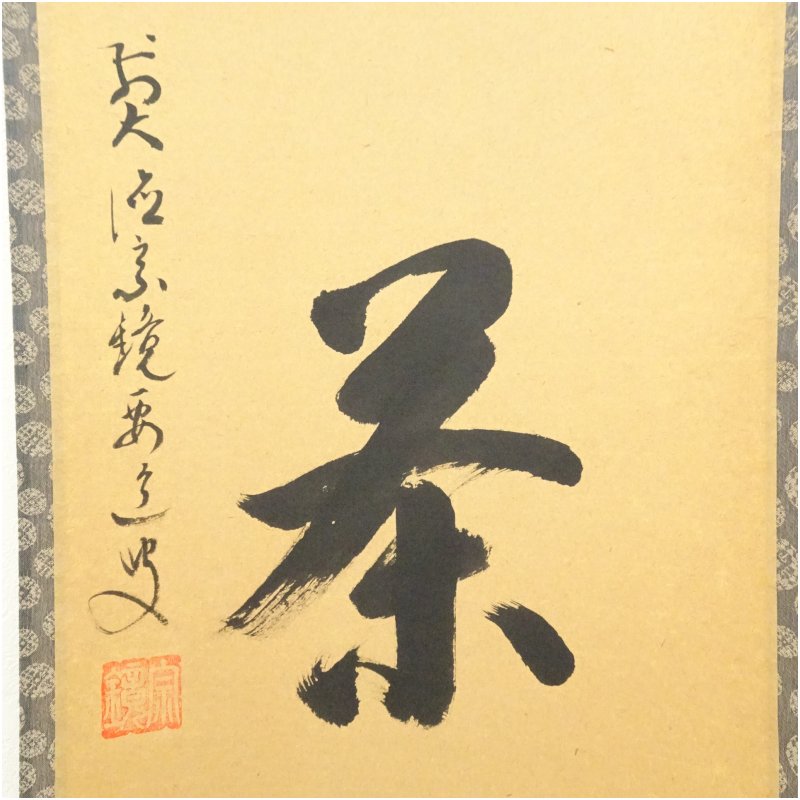 茶
前大徳宗鏡要道叟
宗鏡